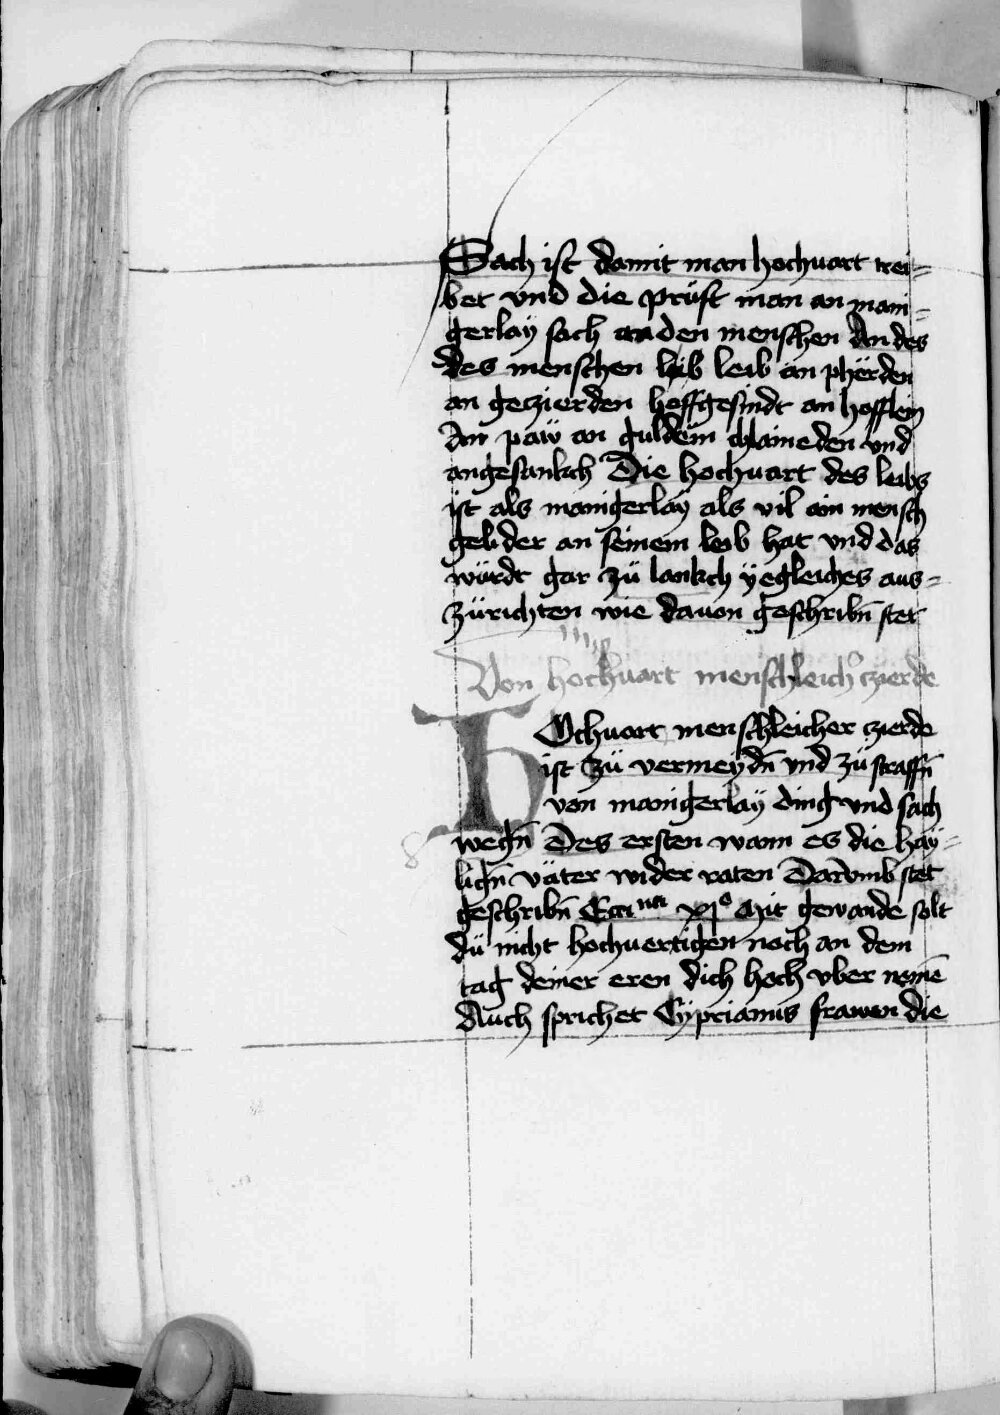 Sach ist damit man hochuart trei-
bet vnd die prüft man an mani-
gerlaÿ sach an den menschen An des
des menschen leib leib an phërden
an geczierden hoffgesindt an hofflein
An paw an guldein chlaineden vnd
angesankch Die hochuart des leibs
ist als manigerlaÿ als vil ain mensch
gelider an seinem leib hat vnd das
würdt gar zü lankch ÿegleiches aus-
zürichten wie dauon geschribn̄ stet
Von hochuart menschleichᵒ czierde
Hochuart menschleicher zierde
ist zü vermeÿdn̄ vnd zü straffn̄
von manigerlaÿ ding vnd sach
wegn̄ Des ersten wann es die haÿ-
lign̄ väter wider raten Darvmb stet
geschribn̄ xjᵒ Mit gewande solt
dü nicht hochuertigen noch an dem
tag deiner eren dich hoch vber nemē
Auch sprichet Cÿprianus frawen die